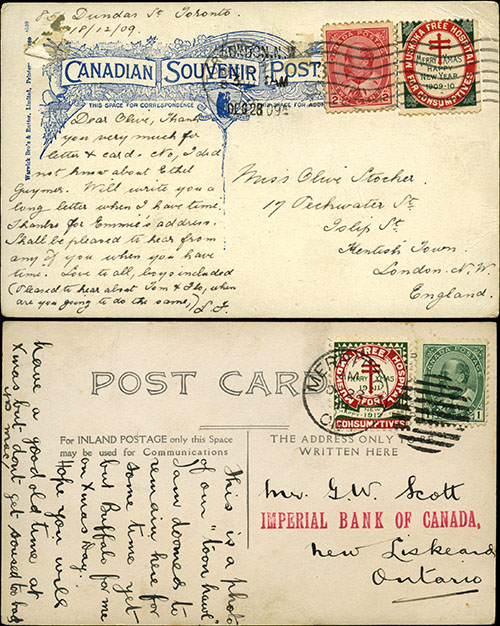 Dundas St Toronto.
18/12/09.
CANADIAN SOUVENIR POST
THIS SPACE FOR CORRESPONDENCE
FOR ADDRESS
Warwick Bro's & Rutter, Limited, Printers
Dear Olive, Thank
you very much for
letter & card. No, I did
not know about Ethel
Guymer. Will write you a
long letter when I have time.
Thanks for Emmie's address.
Shall be pleased to hear from
any of you when you have
time. Love to all, boys included
(Pleased to hear about Tom & Flo, when
are you going to do the same,) L.F.
LONDON. N.W
DE 28 09
CANADA POSTAGE
2 2
MUSKOKA FREE HOSPITAL
MERRY XMAS
HAPPY
NEW YEAR
1909-10
FOR CONSUMPTIVES
Miss Olive Stocher.
17 Peckwater St.
Islip St.
Kentish Town.
London. N.W.
England.
POST CARD
For INLAND POSTAGE only this Space
may be used for Communications
THE ADDRESS ONLY TO BE
WRITTEN HERE
This is a photo
of our "town hawl"
I am doomed to
remain here for
some time yet
but Buffalo for me
on Xmas Day.
Hope you will
have a good old time at
Xmas but dont get soused too bad
MUSKOKA FREE HOSPITAL
MERRY XMAS
NEW
1912
FOR
CONSUMPTIVES
CANADA POSTAGE
1
Mr. G.W. Scott
IMPERIAL BANK OF CANADA,
New Liskeard
Ontario